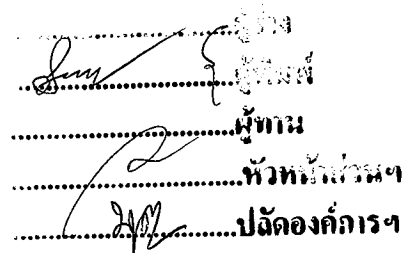 ผู้ร่าง
ผู้พิมพ์
ผู้ทาน
หัวหน้าส่วนฯ
ปลัดองค์การฯ